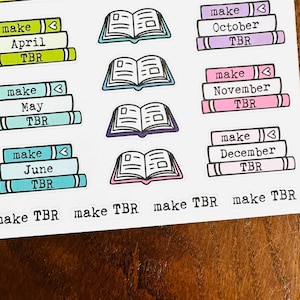 make
April
TBR
make
October
TBR
make
May
TBR
make
November
TBR
make
June
TBR
make
December
TBR
make TBR make TBR make TBR make TBR